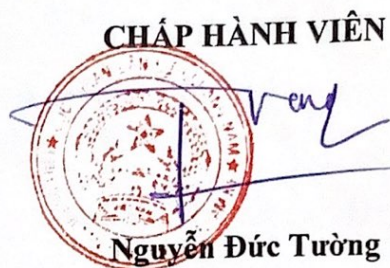 CHẤP HÀNH VIÊN
Nguyễn Đức Tường